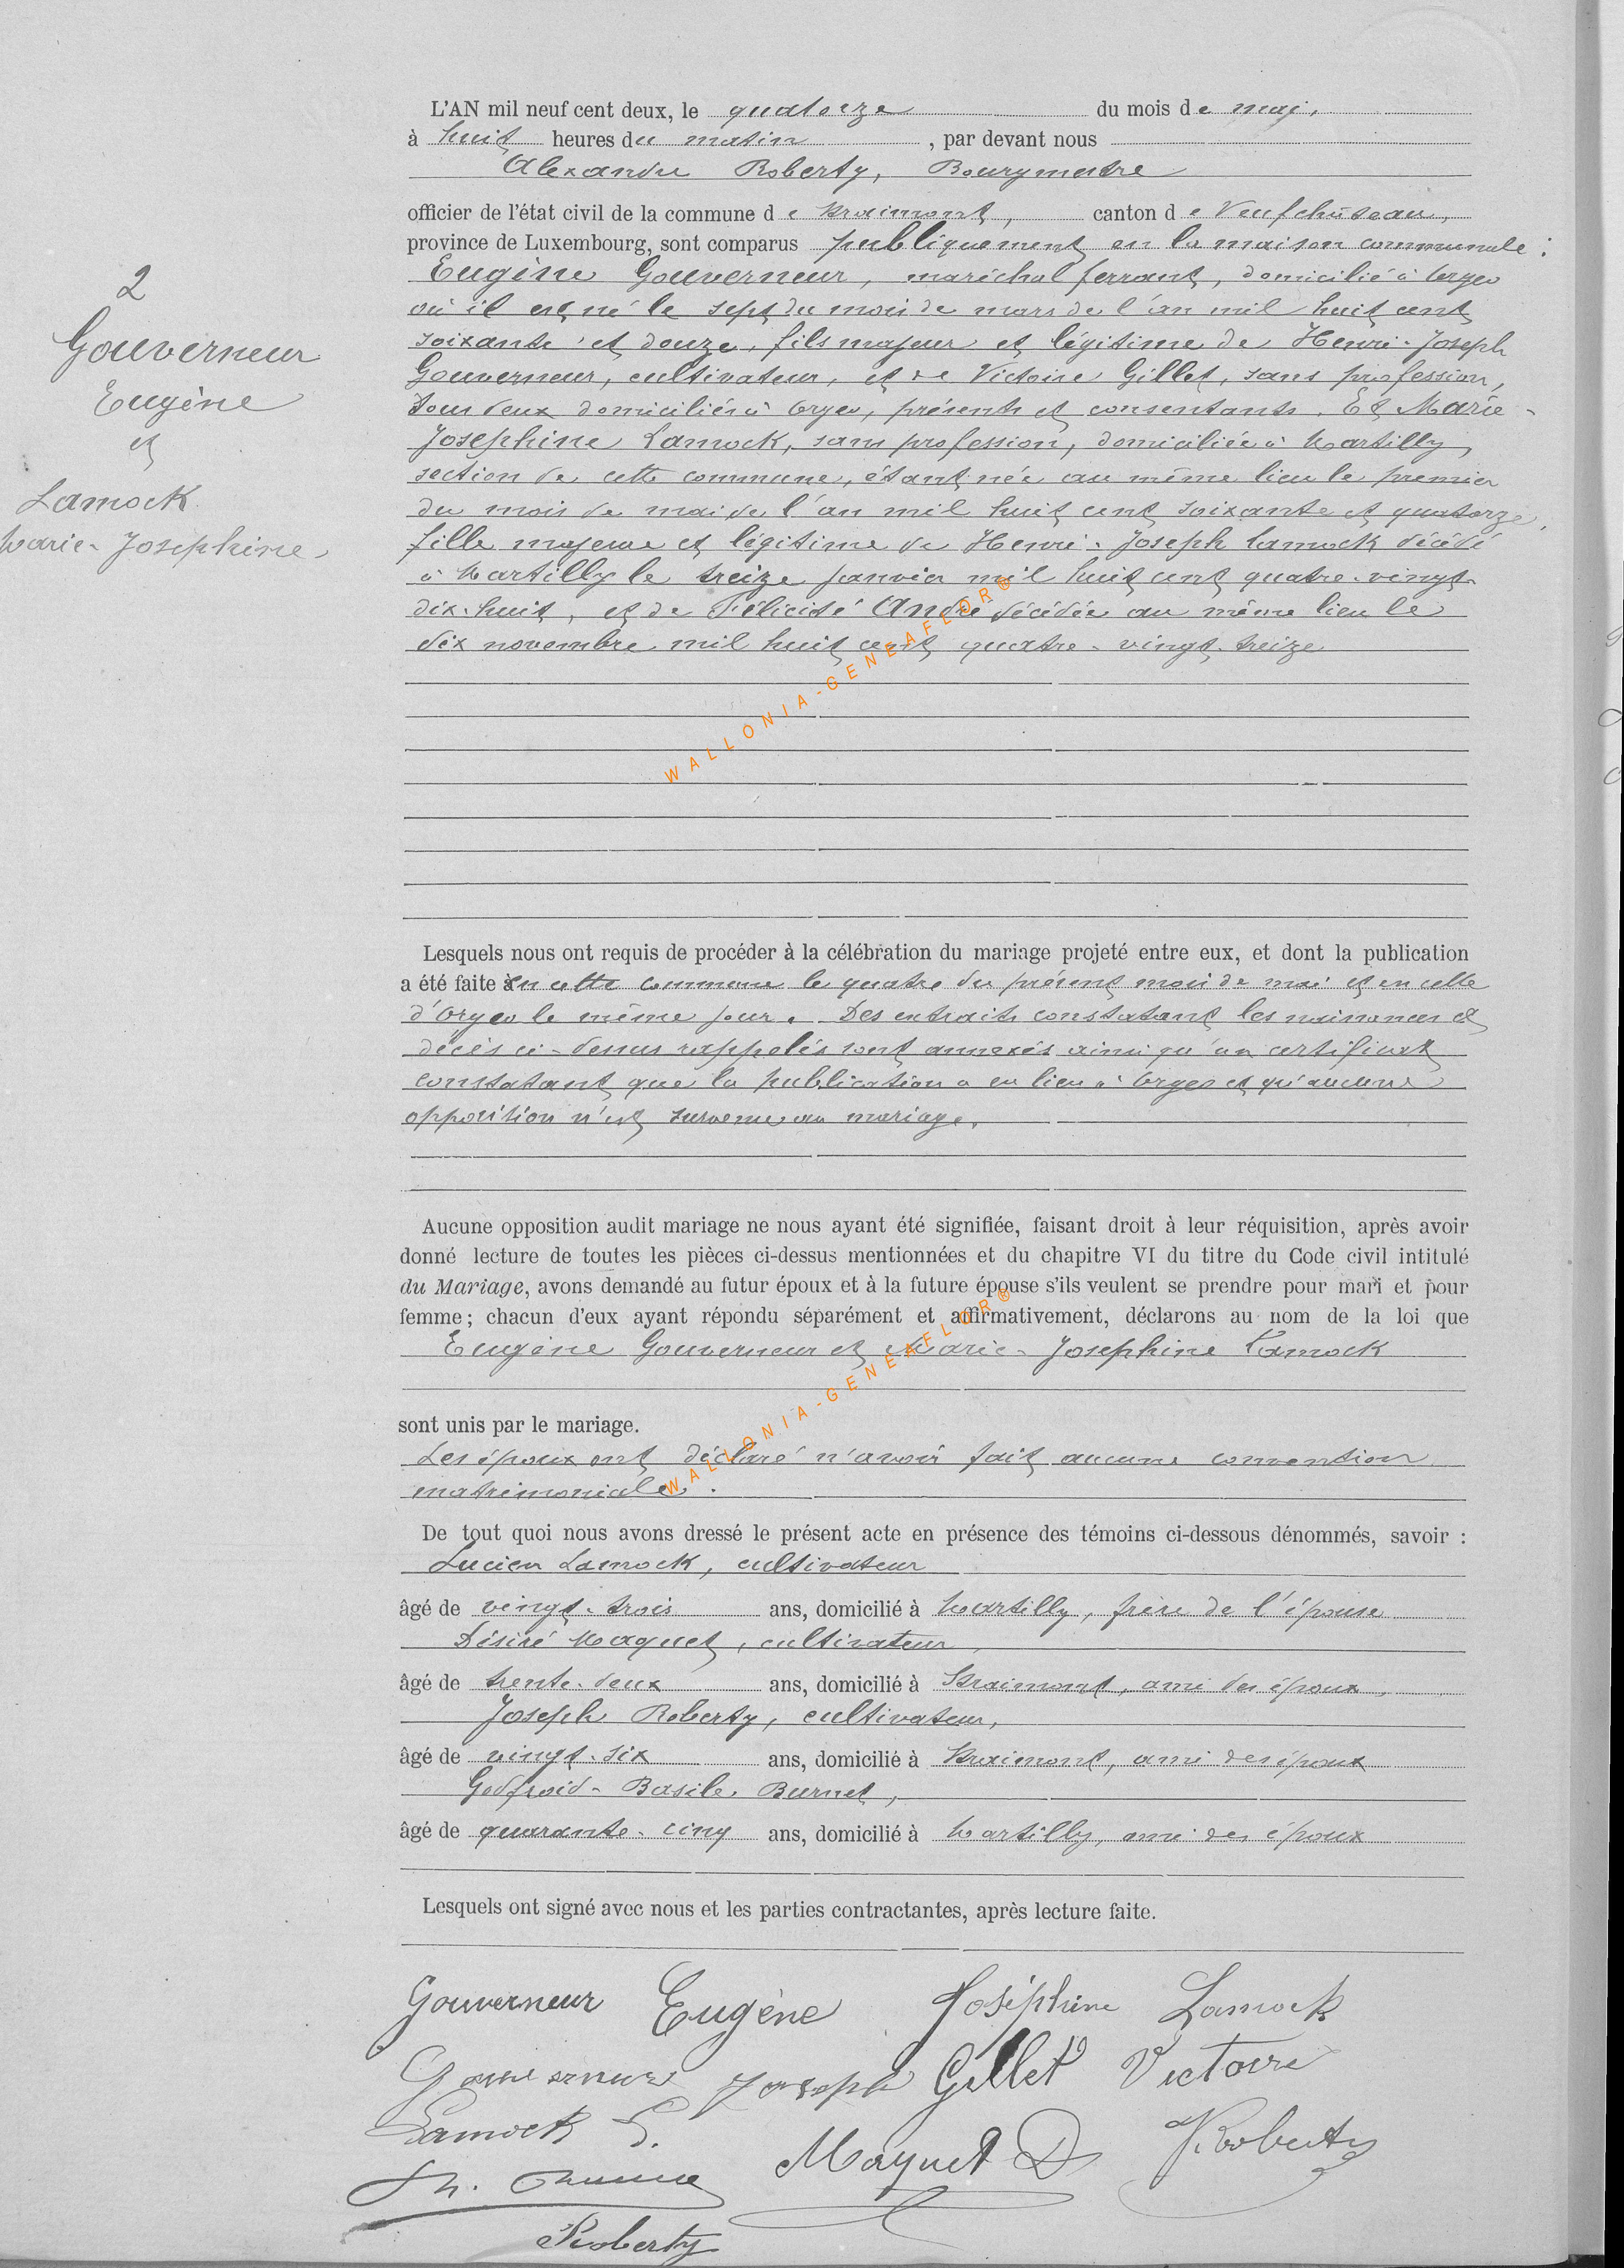 L'AN mil neuf cent deux, le quatorze du mois de mai,
à huit heures du matin, par devant nous
Alexandre Roberty, Bourgmestre
officier de l'état civil de la commune de Straimont, canton de Neufchâteau,
province de Luxembourg, sont comparus publiquement en la maison communale :
Eugène Gouverneur, maréchal ferrant, domicilié à Orgeo
où il est né le sept du mois de mars de l'an mil huit cent
soixante et douze, fils majeur et légitime de Henri-Joseph
Gouverneur, cultivateur, et de Victoire Gillet, sans profession,
tous deux domiciliés à Orgeo, présents et consentants. Et Marie-
2
Gouverneur
Eugène
et
Lamock
Marie-Josephine
Josephine Lamock, sans profession, domiciliée à Martilly,
section de cette commune, étant née au même lieu le premier
du mois de mai de l'an mil huit cent soixante et quatorze,
fille majeure et légitime de Henri-Joseph Lamock décédé
à Martilly le treize janvier mil huit cent quatre-vingt-
dix-huit, et de Félicité André décédée au même lieu le
dix novembre mil huit cent quatre-vingt-treize
WALLONIA-GENEAFLOR®
Lesquels nous ont requis de procéder à la célébration du mariage projeté entre eux, et dont la publication
a été faite en cette commune le quatre du présent mois de mai et en celle
d'Orgeo le même jour. Des extraits constatant les naissances et
décès ci-dessus rappelés sont annexés ainsi qu'un certificat
constatant que la publication a eu lieu à Orgeo et qu'aucune
opposition n'est survenue au mariage.
Aucune opposition audit mariage ne nous ayant été signifiée, faisant droit à leur réquisition, après avoir
donné lecture de toutes les pièces ci-dessus mentionnées et du chapitre VI du titre du Code civil intitulé
du Mariage, avons demandé au futur époux et à la future épouse s'ils veulent se prendre pour mari et pour
femme; chacun d'eux ayant répondu séparément et affirmativement, déclarons au nom de la loi que
Eugène Gouverneur et Marie-Josephine Lamock
WALLONIA-GENEAFLOR®
sont unis par le mariage.
Les époux ont déclaré n'avoir fait aucune convention
matrimoniale.
De tout quoi nous avons dressé le présent acte en présence des témoins ci-dessous dénommés, savoir :
Lucien Lamock, cultivateur
âgé de vingt-trois ans, domicilié à Martilly, frère de l'épouse
Désiré Maquet, cultivateur,
âgé de trente-deux ans, domicilié à Straimont, ami des époux,
Joseph Roberty, cultivateur,
âgé de vingt-six ans, domicilié à Straimont, ami des époux
Godfroid-Basile Burnet,
âgé de quarante-cinq ans, domicilié à Martilly, ami des époux
Lesquels ont signé avec nous et les parties contractantes, après lecture faite.
Gouverneur Eugène Joséphine Lamock
Gouverneur Joseph Gillet Victoire
Lamock L. Maquet D J Roberty
Roberty